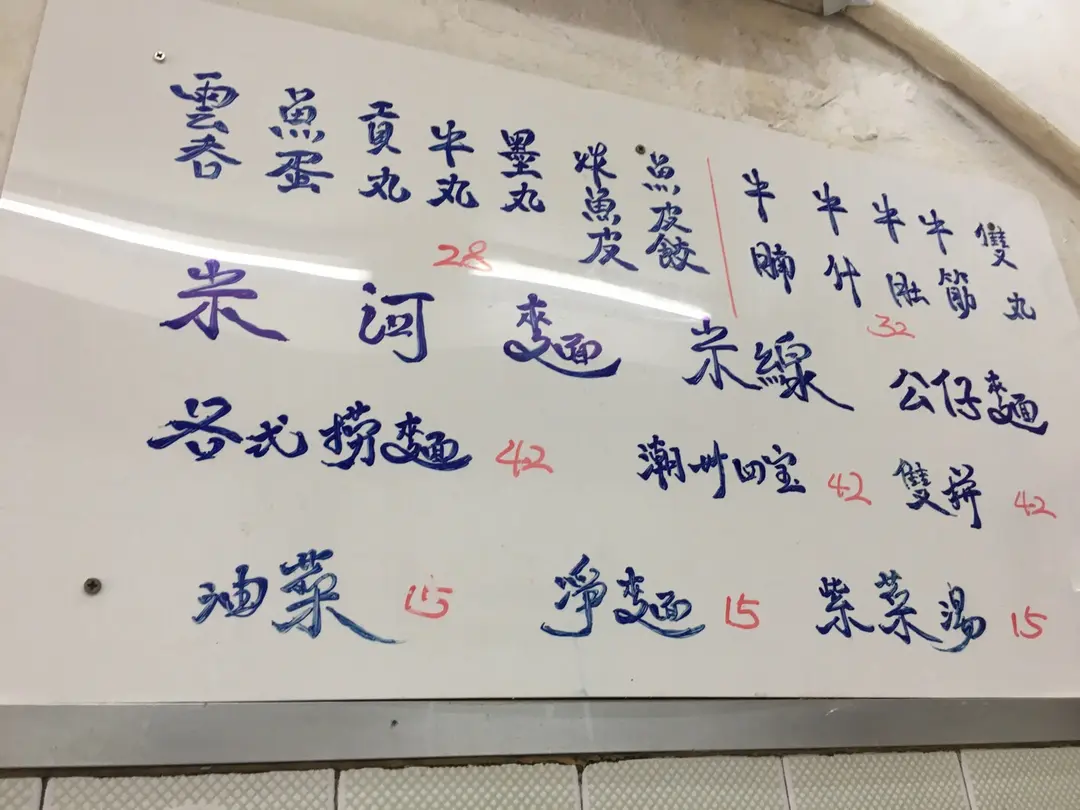 雲吞
魚蛋
貢丸
牛丸
墨丸
炸魚皮
魚皮餃
28
牛腩
牛什
牛肚
牛筋
雙丸
32
米 河 麵 米線 公仔麵
各式撈麵 42 潮州四宝 42 雙拼 42
油菜 15 淨麵 15 紫菜湯 15